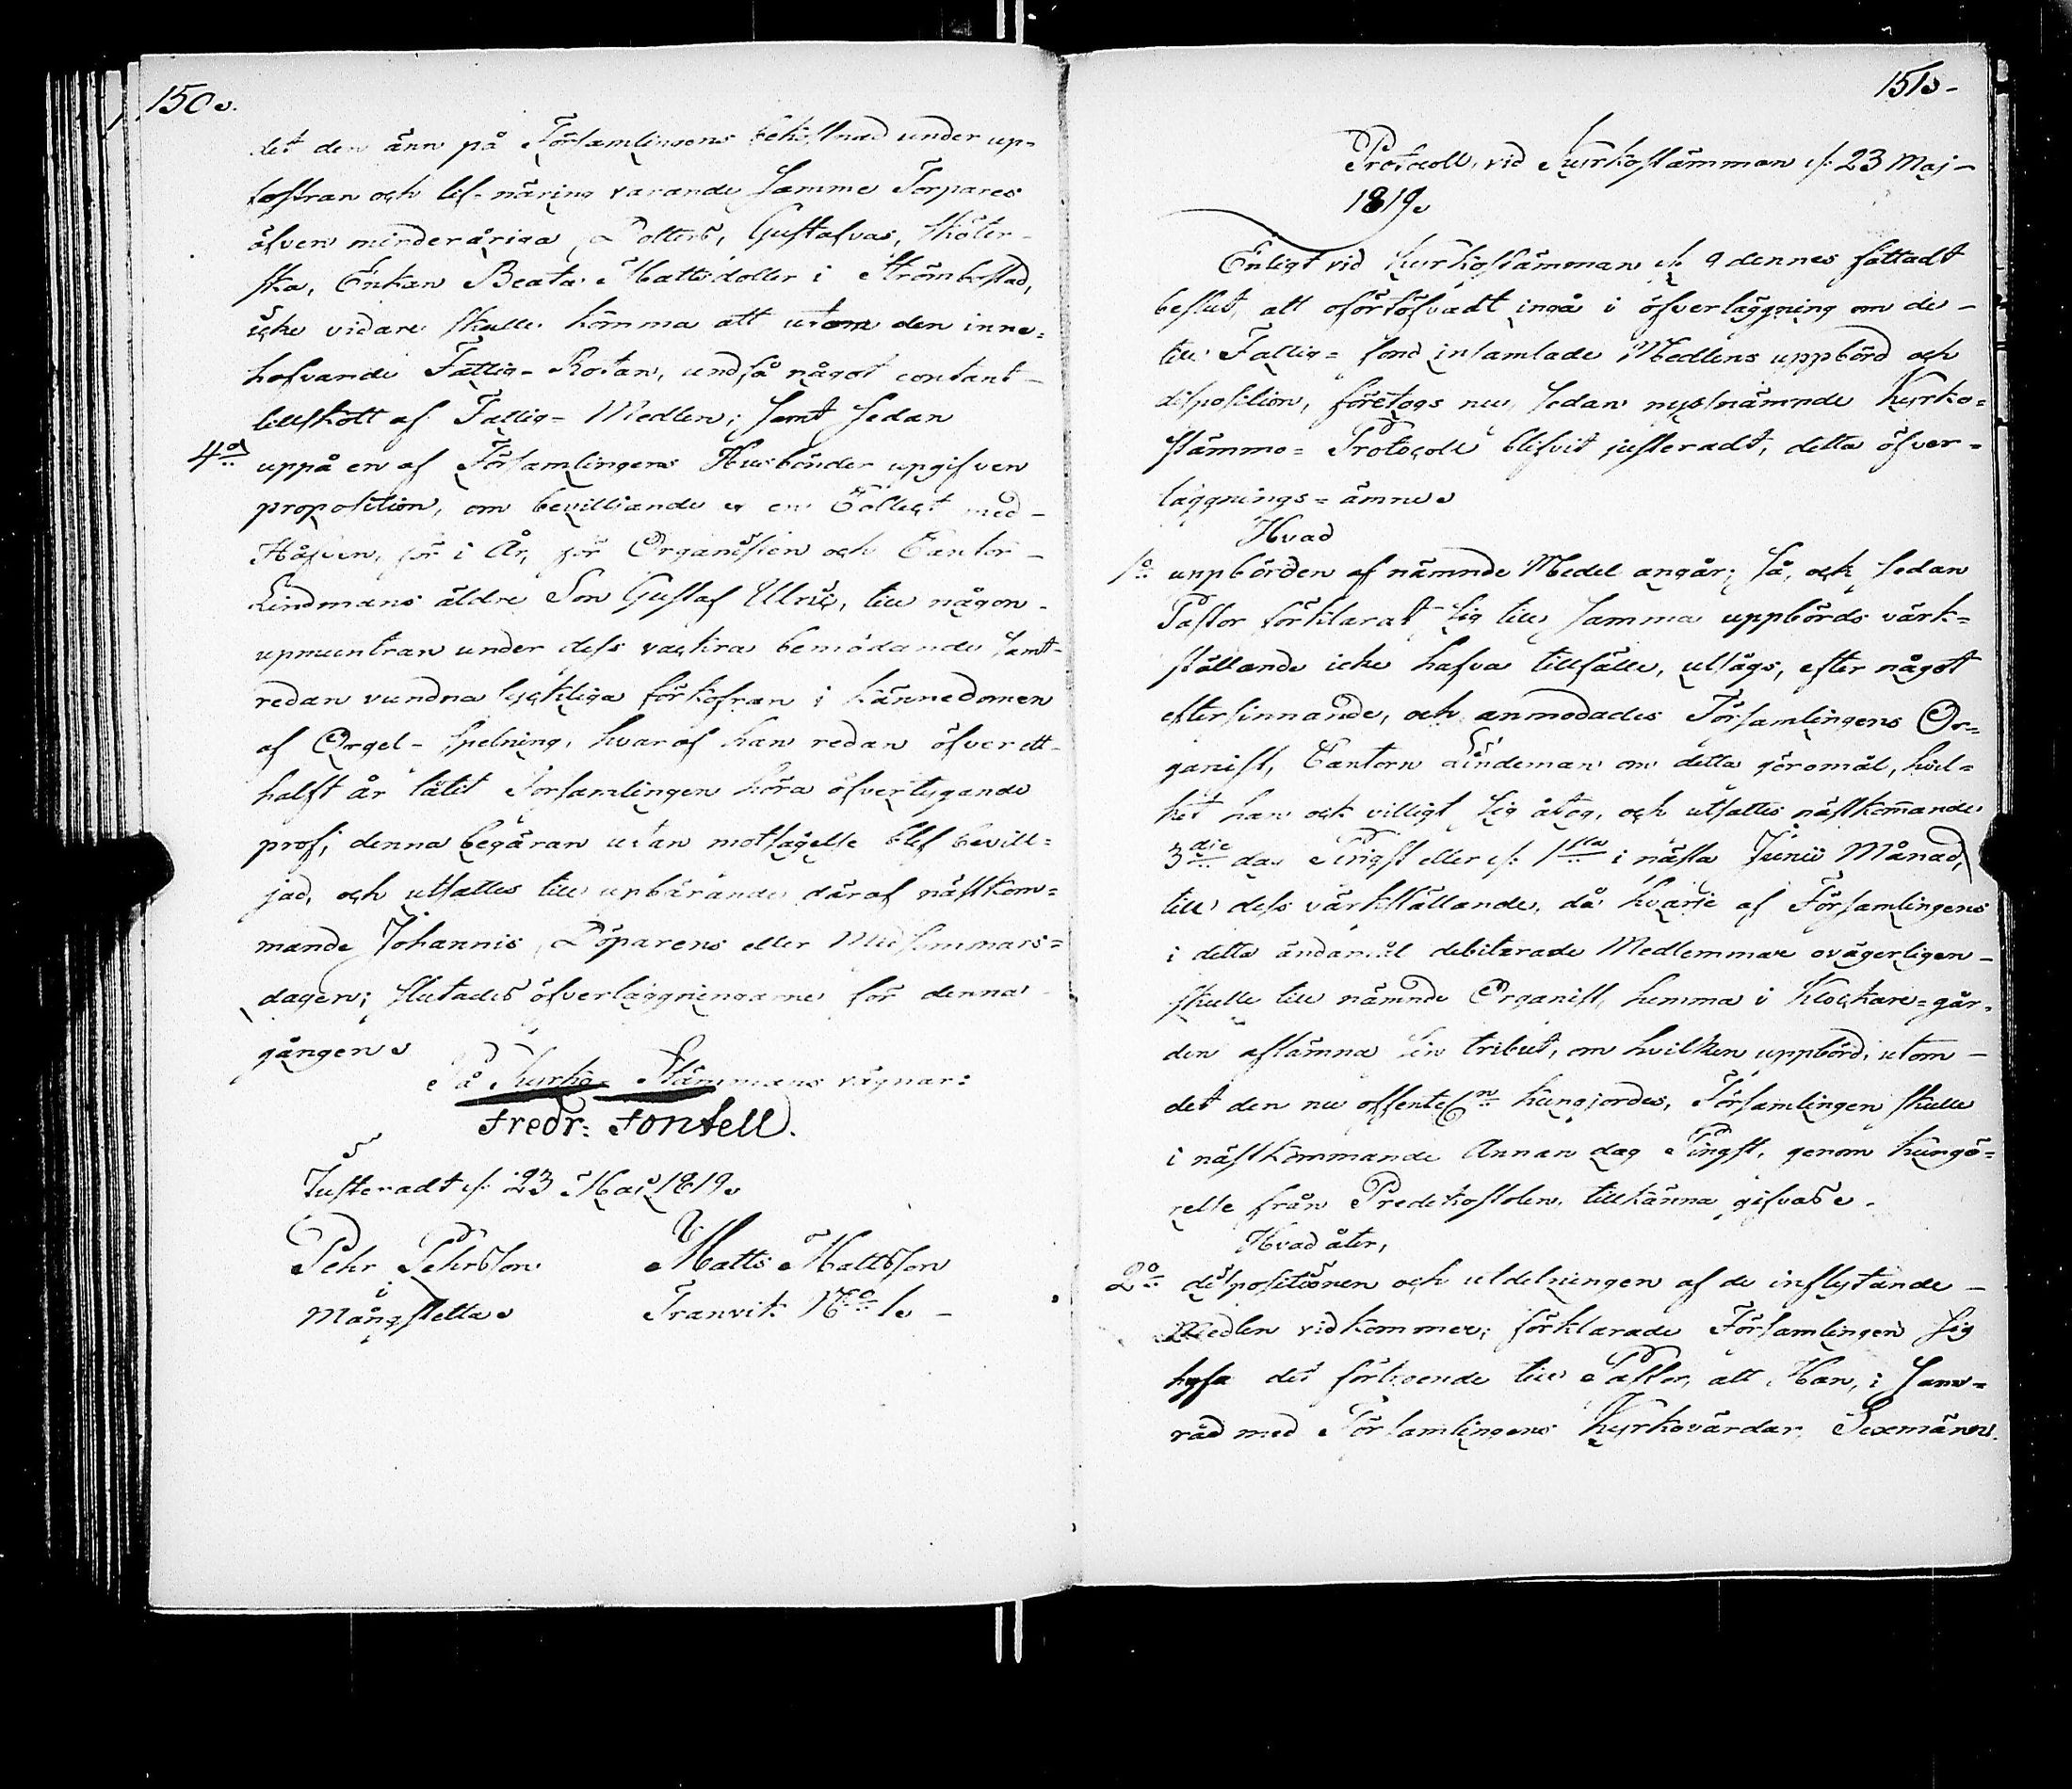 150.
det den änn på Församlingens bekostnad under up-
fostran och lif-näring varande samme Torpares
öfven minderåriga Dotters, Gustafvas, sköter-
ska, Enkan Beata Mattsdotter i Strömbstad,
icke vidare skulle komma att utom den inne-
hafvande Fattig-Rotan, undfå något contant
tillskott af Fattig-Medlen; samt sedan
4o uppå en af Församlingens Husbönder upgifven
proposition, om bevilljande af en Collect med
Håfven, för i År, för Organisten och Cantor
Lindmans äldre Son Gustaf Ulric, till någon
upmuntran under dess vackra bemödande samt
redan vundna lyckliga förkofran i kännedomen
af Orgel-spelning, hvaraf han redan öfver ett
halft år låtit Församlingen höra öfvertygande
prof; denna begäran utan motsägelse blef bevill-
jad, och utsattes till upbärande däraf nästkom-
mande Johannis Döparens eller Midsommars-
dagen; slutades öfverläggningarne för denna
gången.
På Kyrko-Stämmans vägnar:
Fredr: Fontell.
Justeradt d. 23 Maij 1819.
Pehr Pehrsson Matts Mattsson
i
Mångstetta. Tranvik No 1.
151.
Protocoll, vid Kyrkostämman d. 23 Maj
1819.
Enligt vid Kyrkostämman d. 9 dennes fattadt
beslut, att oförtöfvadt ingå i öfverläggning om de
till Fattig-fond insamlade Medlens uppbörd och
disposition, företogs nu, sedan nyssnämnde Kyrko-
stämmo-Protocoll blifvit justeradt, detta öfver-
läggnings-ämne.
Hvad
1o uppbörden af nämnde Medel angår; så, och sedan
Pastor förklarat sig till samma uppbörds värk-
ställande icke hafva tillfälle, utsågs, efter något
eftersinnande, och anmodades Församlingens Or-
ganist, Cantorn Lindeman om detta göromål, hvil-
ket han ock villigt sig åtog, och utsattes nästkommande
3die dag Pingst eller d. 1sta i nästa Junii Månad,
till dess värkställande, då hvarje af Församlingens
i detta ändamål debiterade Medlemmar ovägerligen
skulle till nämnde Organist, hemma i Klockare-går-
den aflämna sin tribut, om hvilken uppbörd, utom
det den nu offenteln kungjordes, Församlingen skulle
i nästkommande Annan dag Pingst, genom kungö-
relse från Predikostolen, tillkänna gifvas.
Hvad åter,
2o dispositionen och utdelningen af de inflytande
Medlen vidkommer; förklarade Församlingen sig
hysa det förtroende till Pastor, att Han, i sam-
råd med Församlingens Kyrkovärdar, Sexmänn